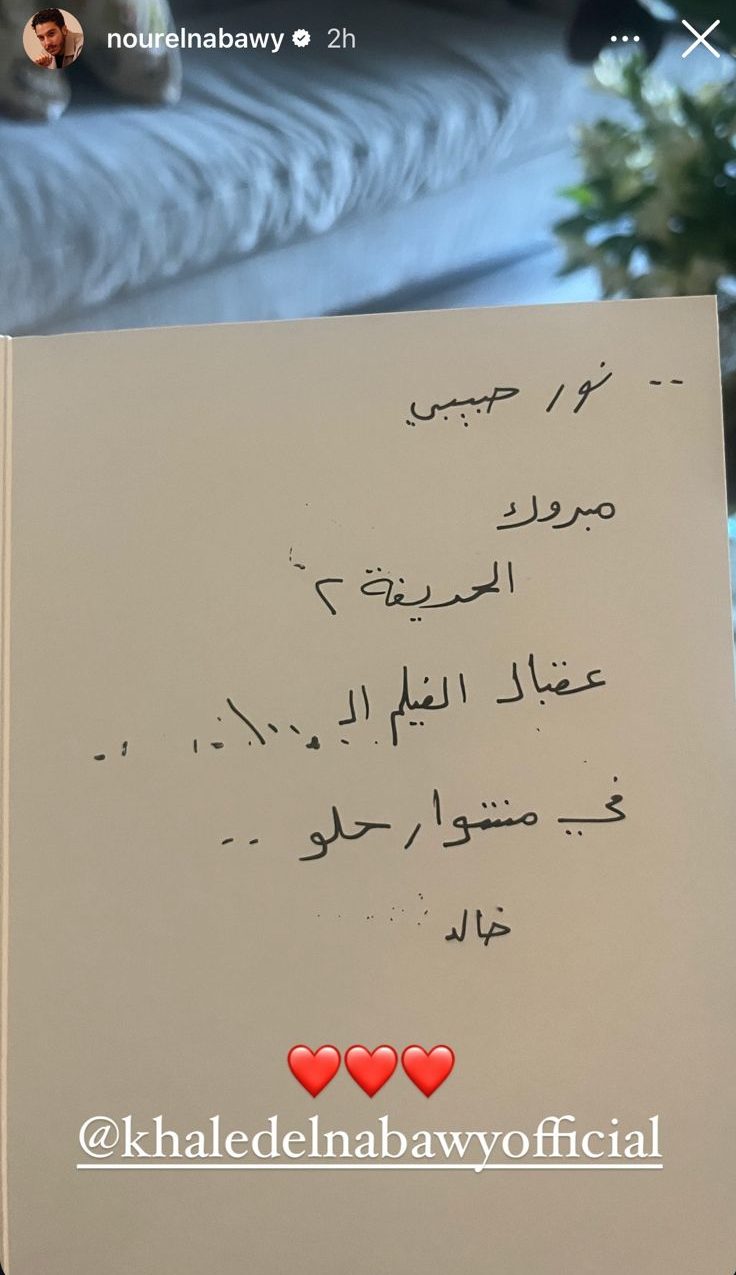 nourelnabawy 2h
.. نور حبيبي
مبروك
الحريفة ٢
عقبال الفيلم الـ
في مشوار حلو ..
خالد
@khaledelnabawyofficial